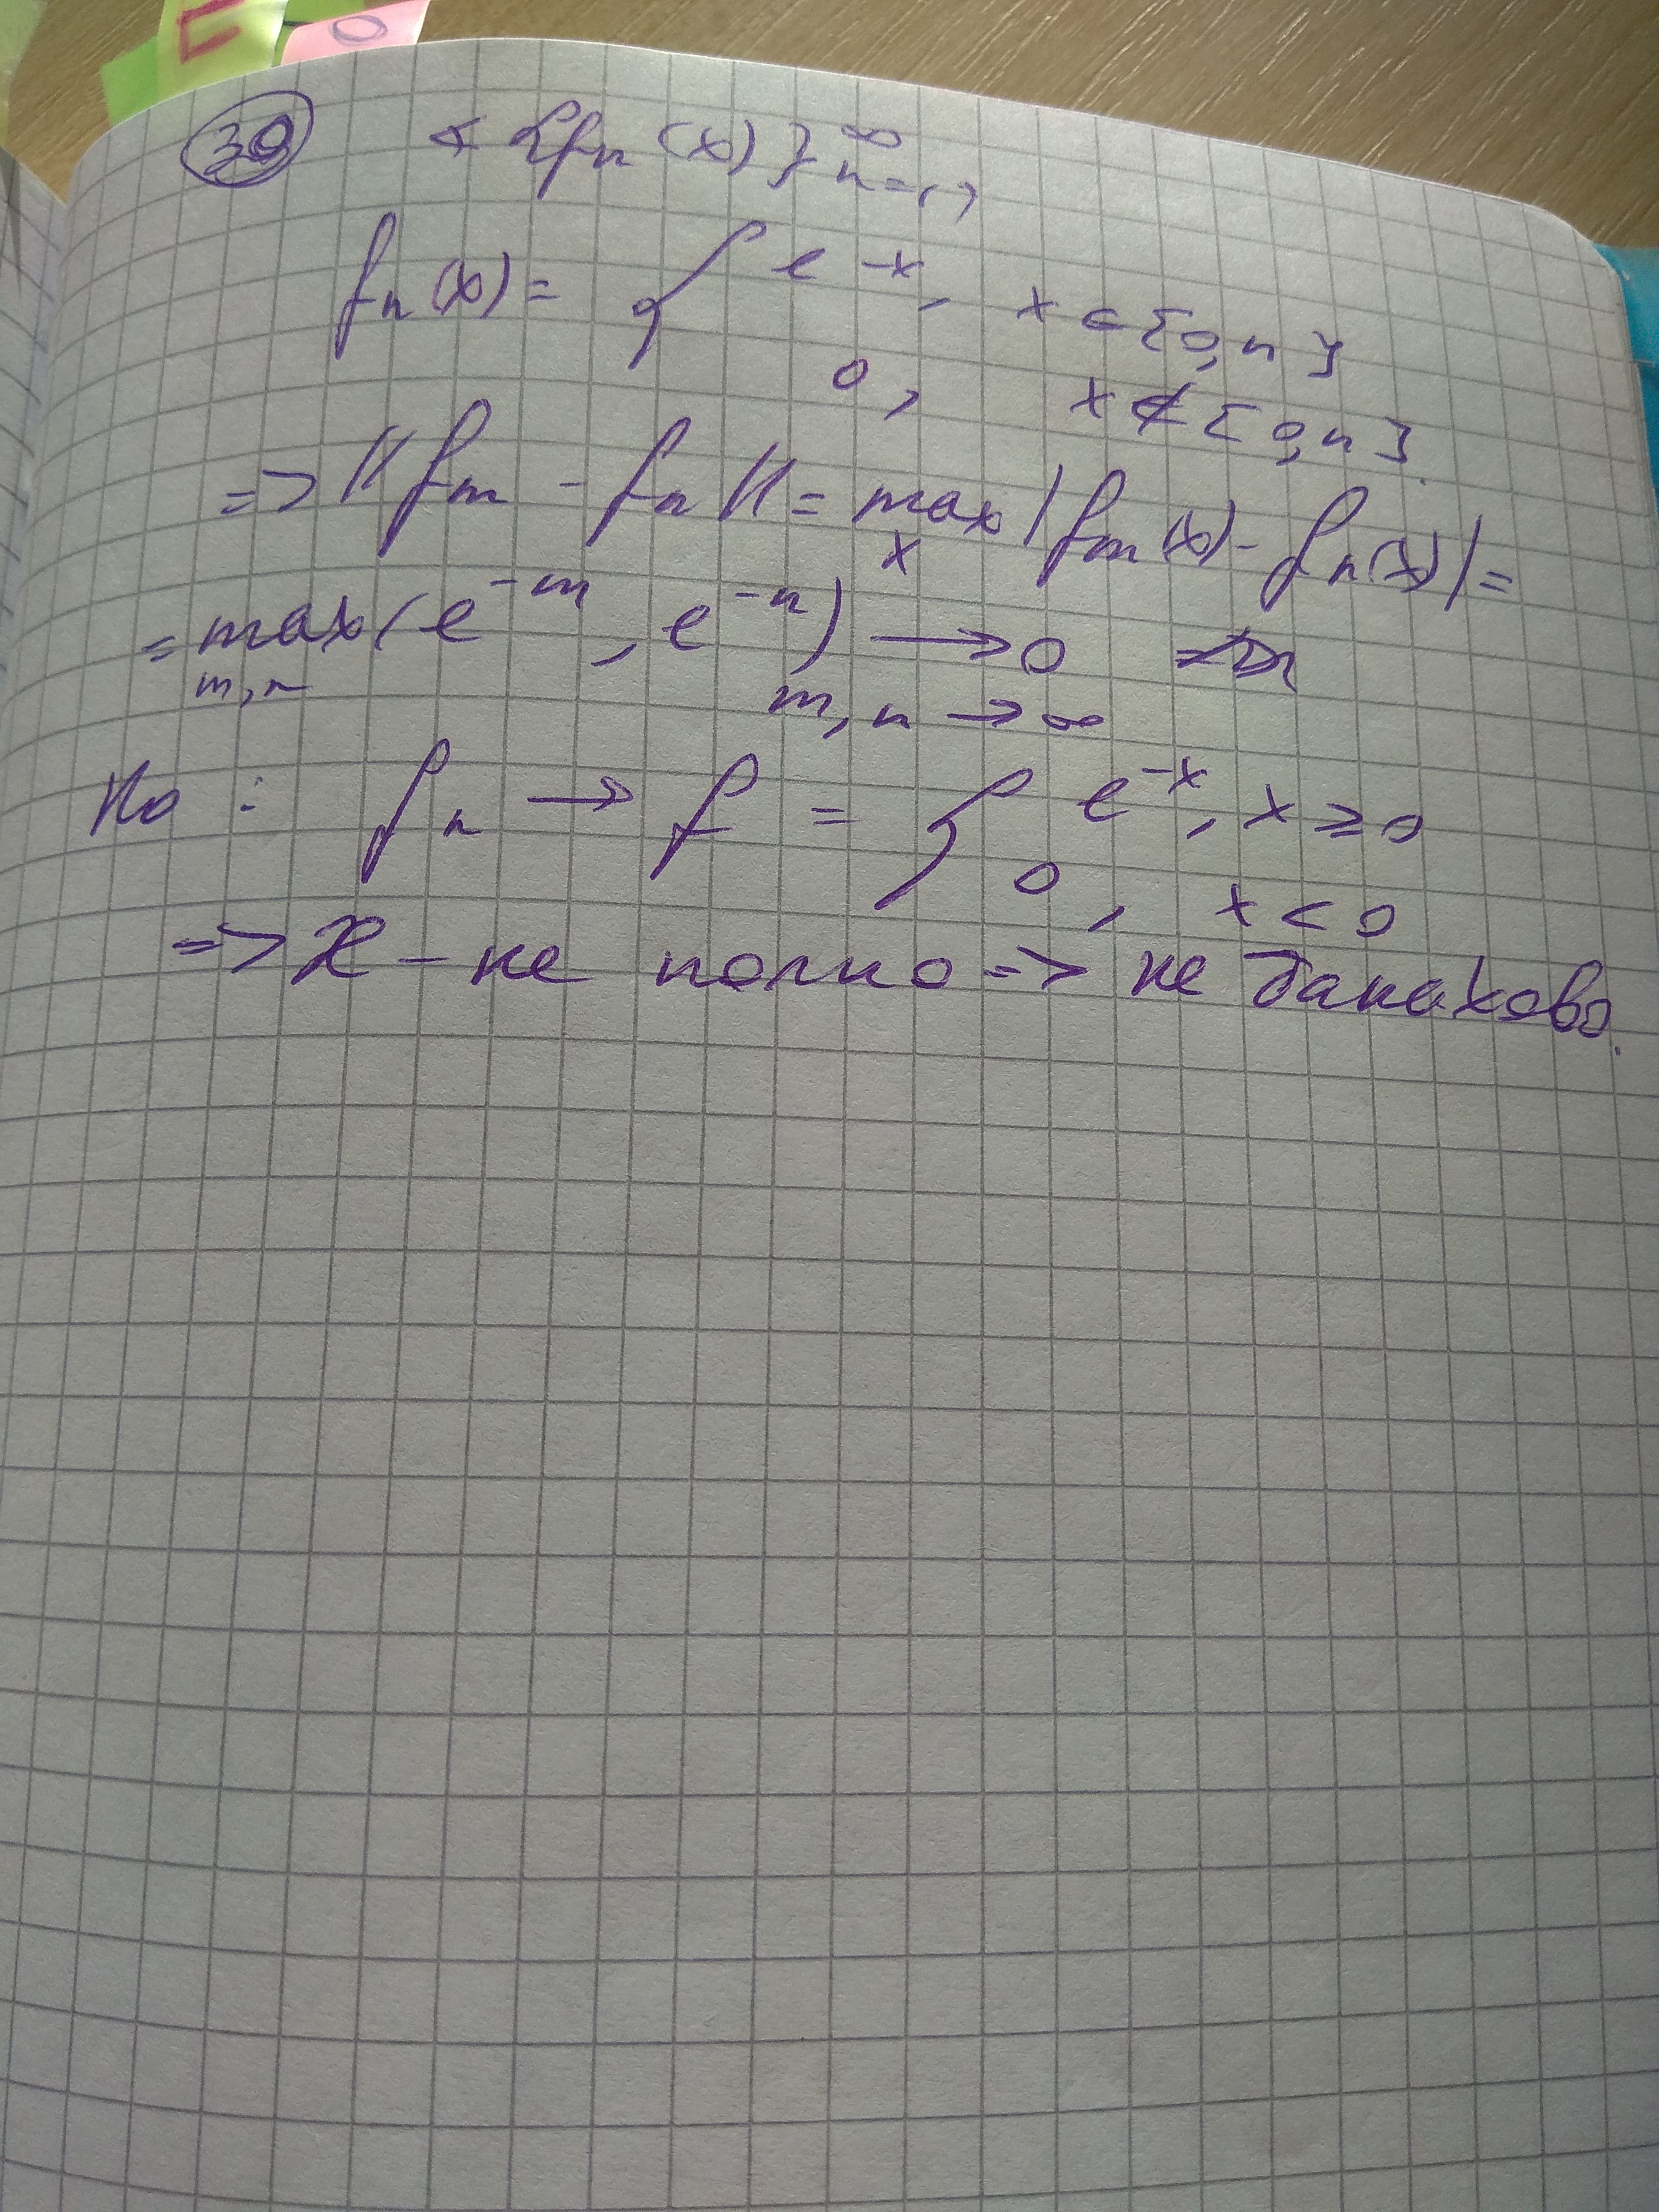 П
О
39 ∢ {fₙ(x)}_{n=1}^∞,
fₙ(x) = { e^{-x}, x ∈ [0,n]
0, x ∉ [0,n].
=> ||fₘ - fₙ|| = max_x |fₘ(x) - fₙ(x)| =
= max_{m,n}(e^{-m}, e^{-n}) ⟶ 0
m,n → ∞
Но : fₙ → f = { e^{-x}, x ≥ 0
0, x < 0
=> X - не полно => не банахово.